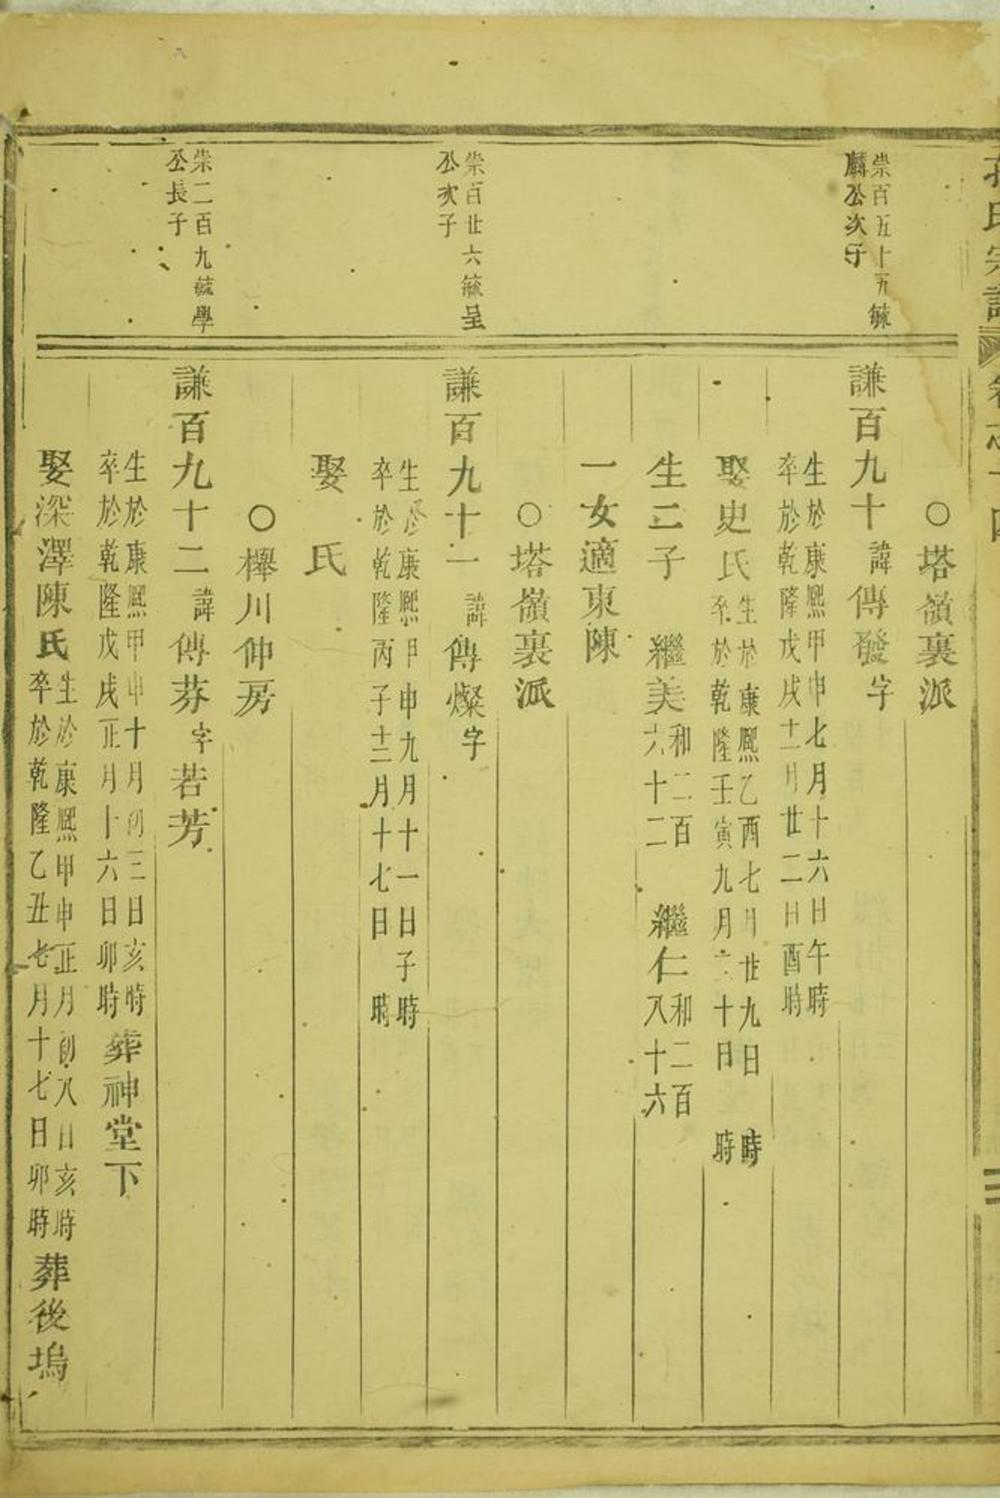 氏宗譜
崇百五十五毓
麟公次子
○塔嶺裏派
謙百九十 諱傳發字
生於康熙甲申七月十六日午時
卒於乾隆戊戌十二月廿二日酉時
娶史氏
生於康熙乙酉七月廿九日 時
卒於乾隆壬寅九月二十日 時
生二子 繼美 和二百六十二 繼仁 和二百八十六
一女適東陳
崇百廿六毓呈
公次子
○塔嶺裏派
謙百九十一 諱傳燦字
生於康熙甲申九月十一日子時
卒於乾隆丙子十二月十七日 時
娶 氏
崇二百九毓學
公長子
○櫸川仲房
謙百九十二 諱傳芬字若芳
生於康熙甲申十月初三日亥時
卒於乾隆戊戌正月十六日卯時
葬神堂下
娶深澤陳氏
生於康熙甲申正月初八日亥時
卒於乾隆乙丑七月十七日卯時
葬後塢